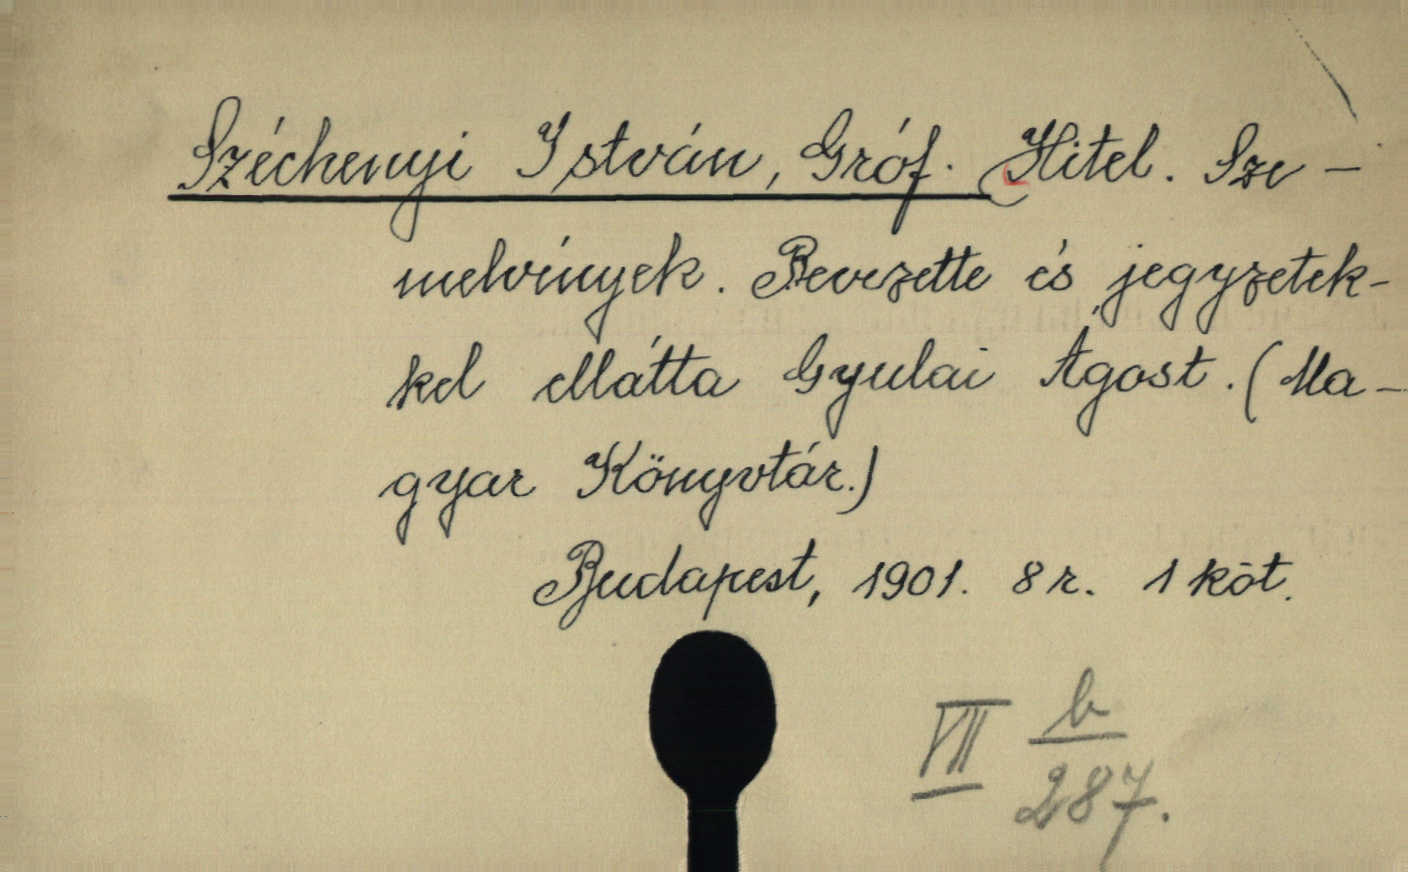 Széchenyi István, Gróf. Hitel. Sze-
melvények. Bevezette és jegyzetek-
kel ellátta Gyulai Ágost. (Ma-
gyar Könyvtár.)
Budapest, 1901. 8 r. 1 köt.
VII b
287.